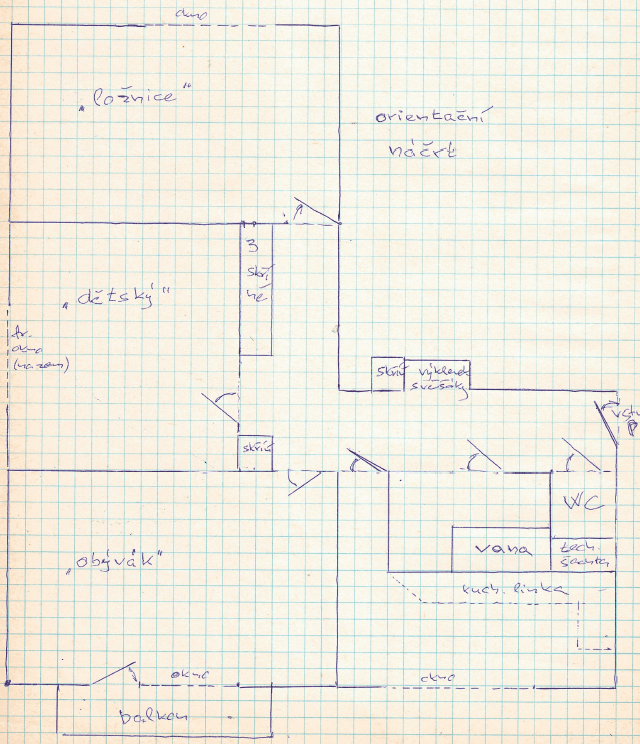 okno
„ložnice“
orientační
náčrt
3
skří
ně
„dětský“
fr.
okno
(na zem)
skříň výklenek
s věšáky
vstup
skříň
WC
vana
tech.
šachta
„obývák“
kuch. linka
okno
okno
balkon